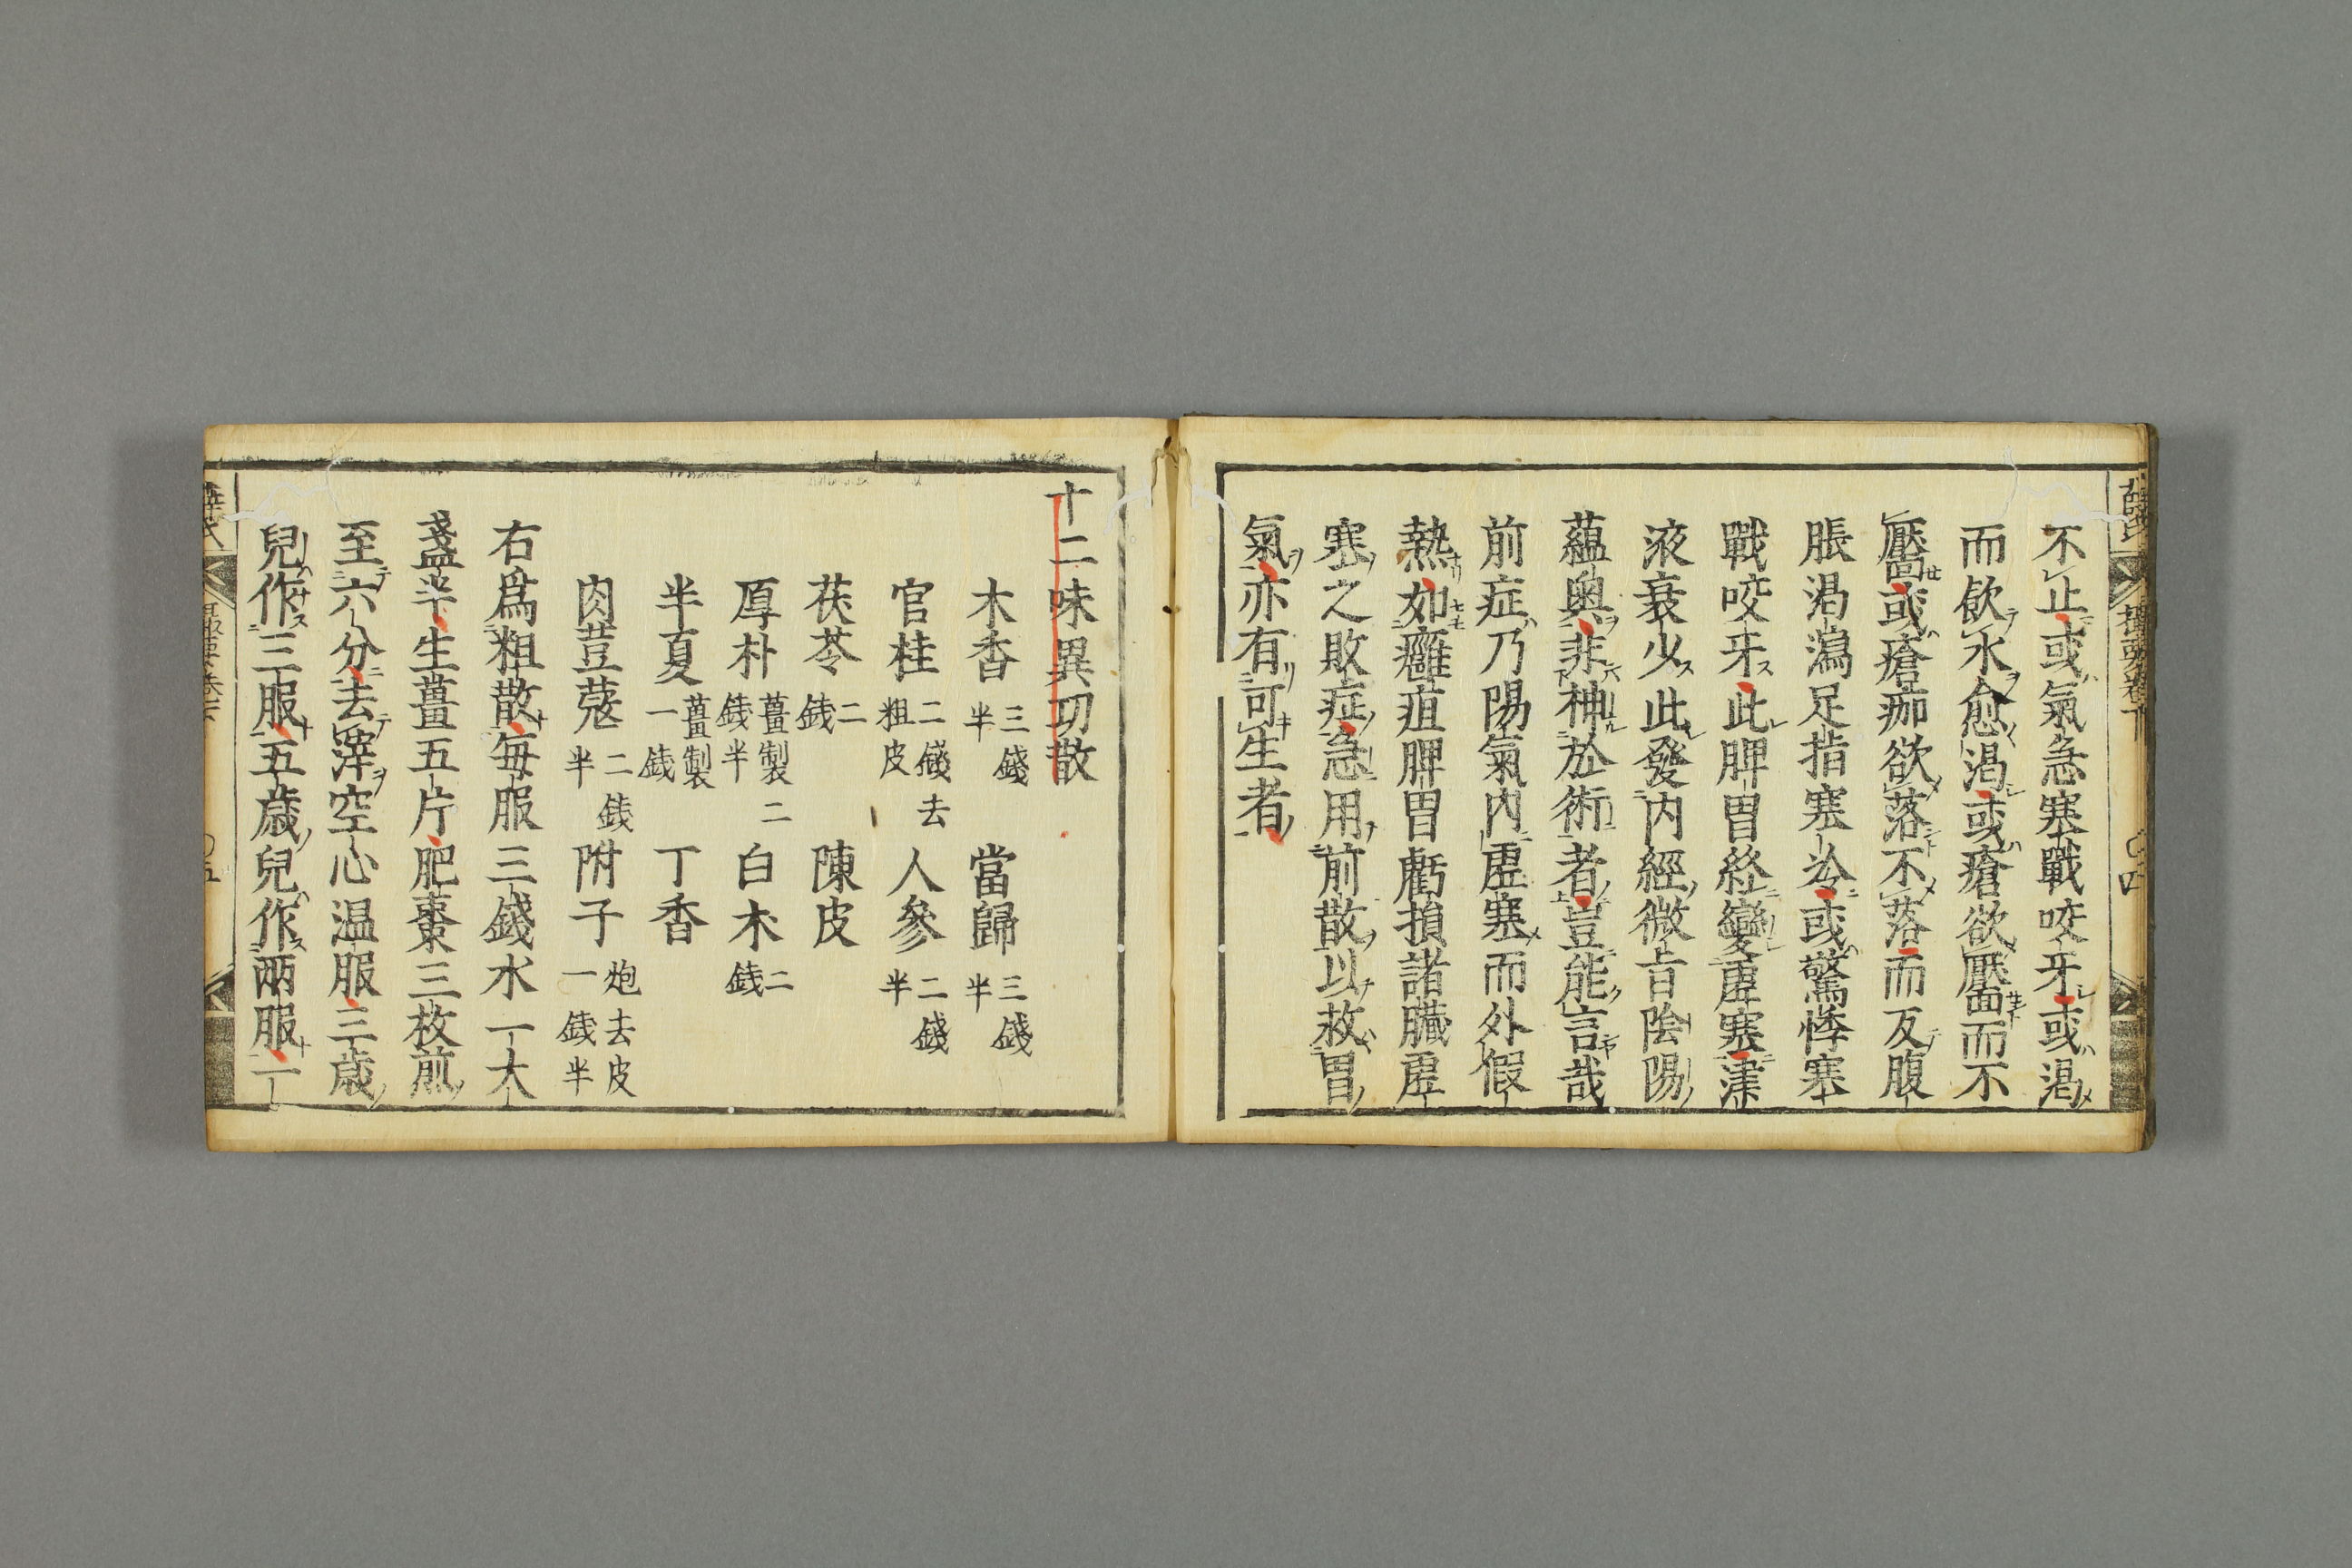 不止或氣急寒戰咬牙或渇
而飲水愈渇或瘡欲靨而不
靨或瘡痂欲落不落而反腹
脹渇瀉足指寒冷或驚悸寒
戰咬牙此脾胃終變虛寒津
液衰少此發内經微旨陰陽
蘊奥非神於術者豈能言哉
前症乃陽氣内虛寒而外假
熱如癰疽脾胃虧損諸臟虛
寒之敗症急用前散以救胃
氣亦有可生者
十二味異功散
木香三錢半 當歸三錢半
官桂二錢去粗皮 人參二錢半
茯苓二錢 陳皮
厚朴薑製二錢半 白木二錢
半夏薑製一錢 丁香
肉荳蔻二錢半 附子炮去皮一錢半
右爲粗散每服三錢水一大
盞半生薑五片肥棗三枚煎
至六分去滓空心温服三歳
兒作三服五歳兒作兩服一